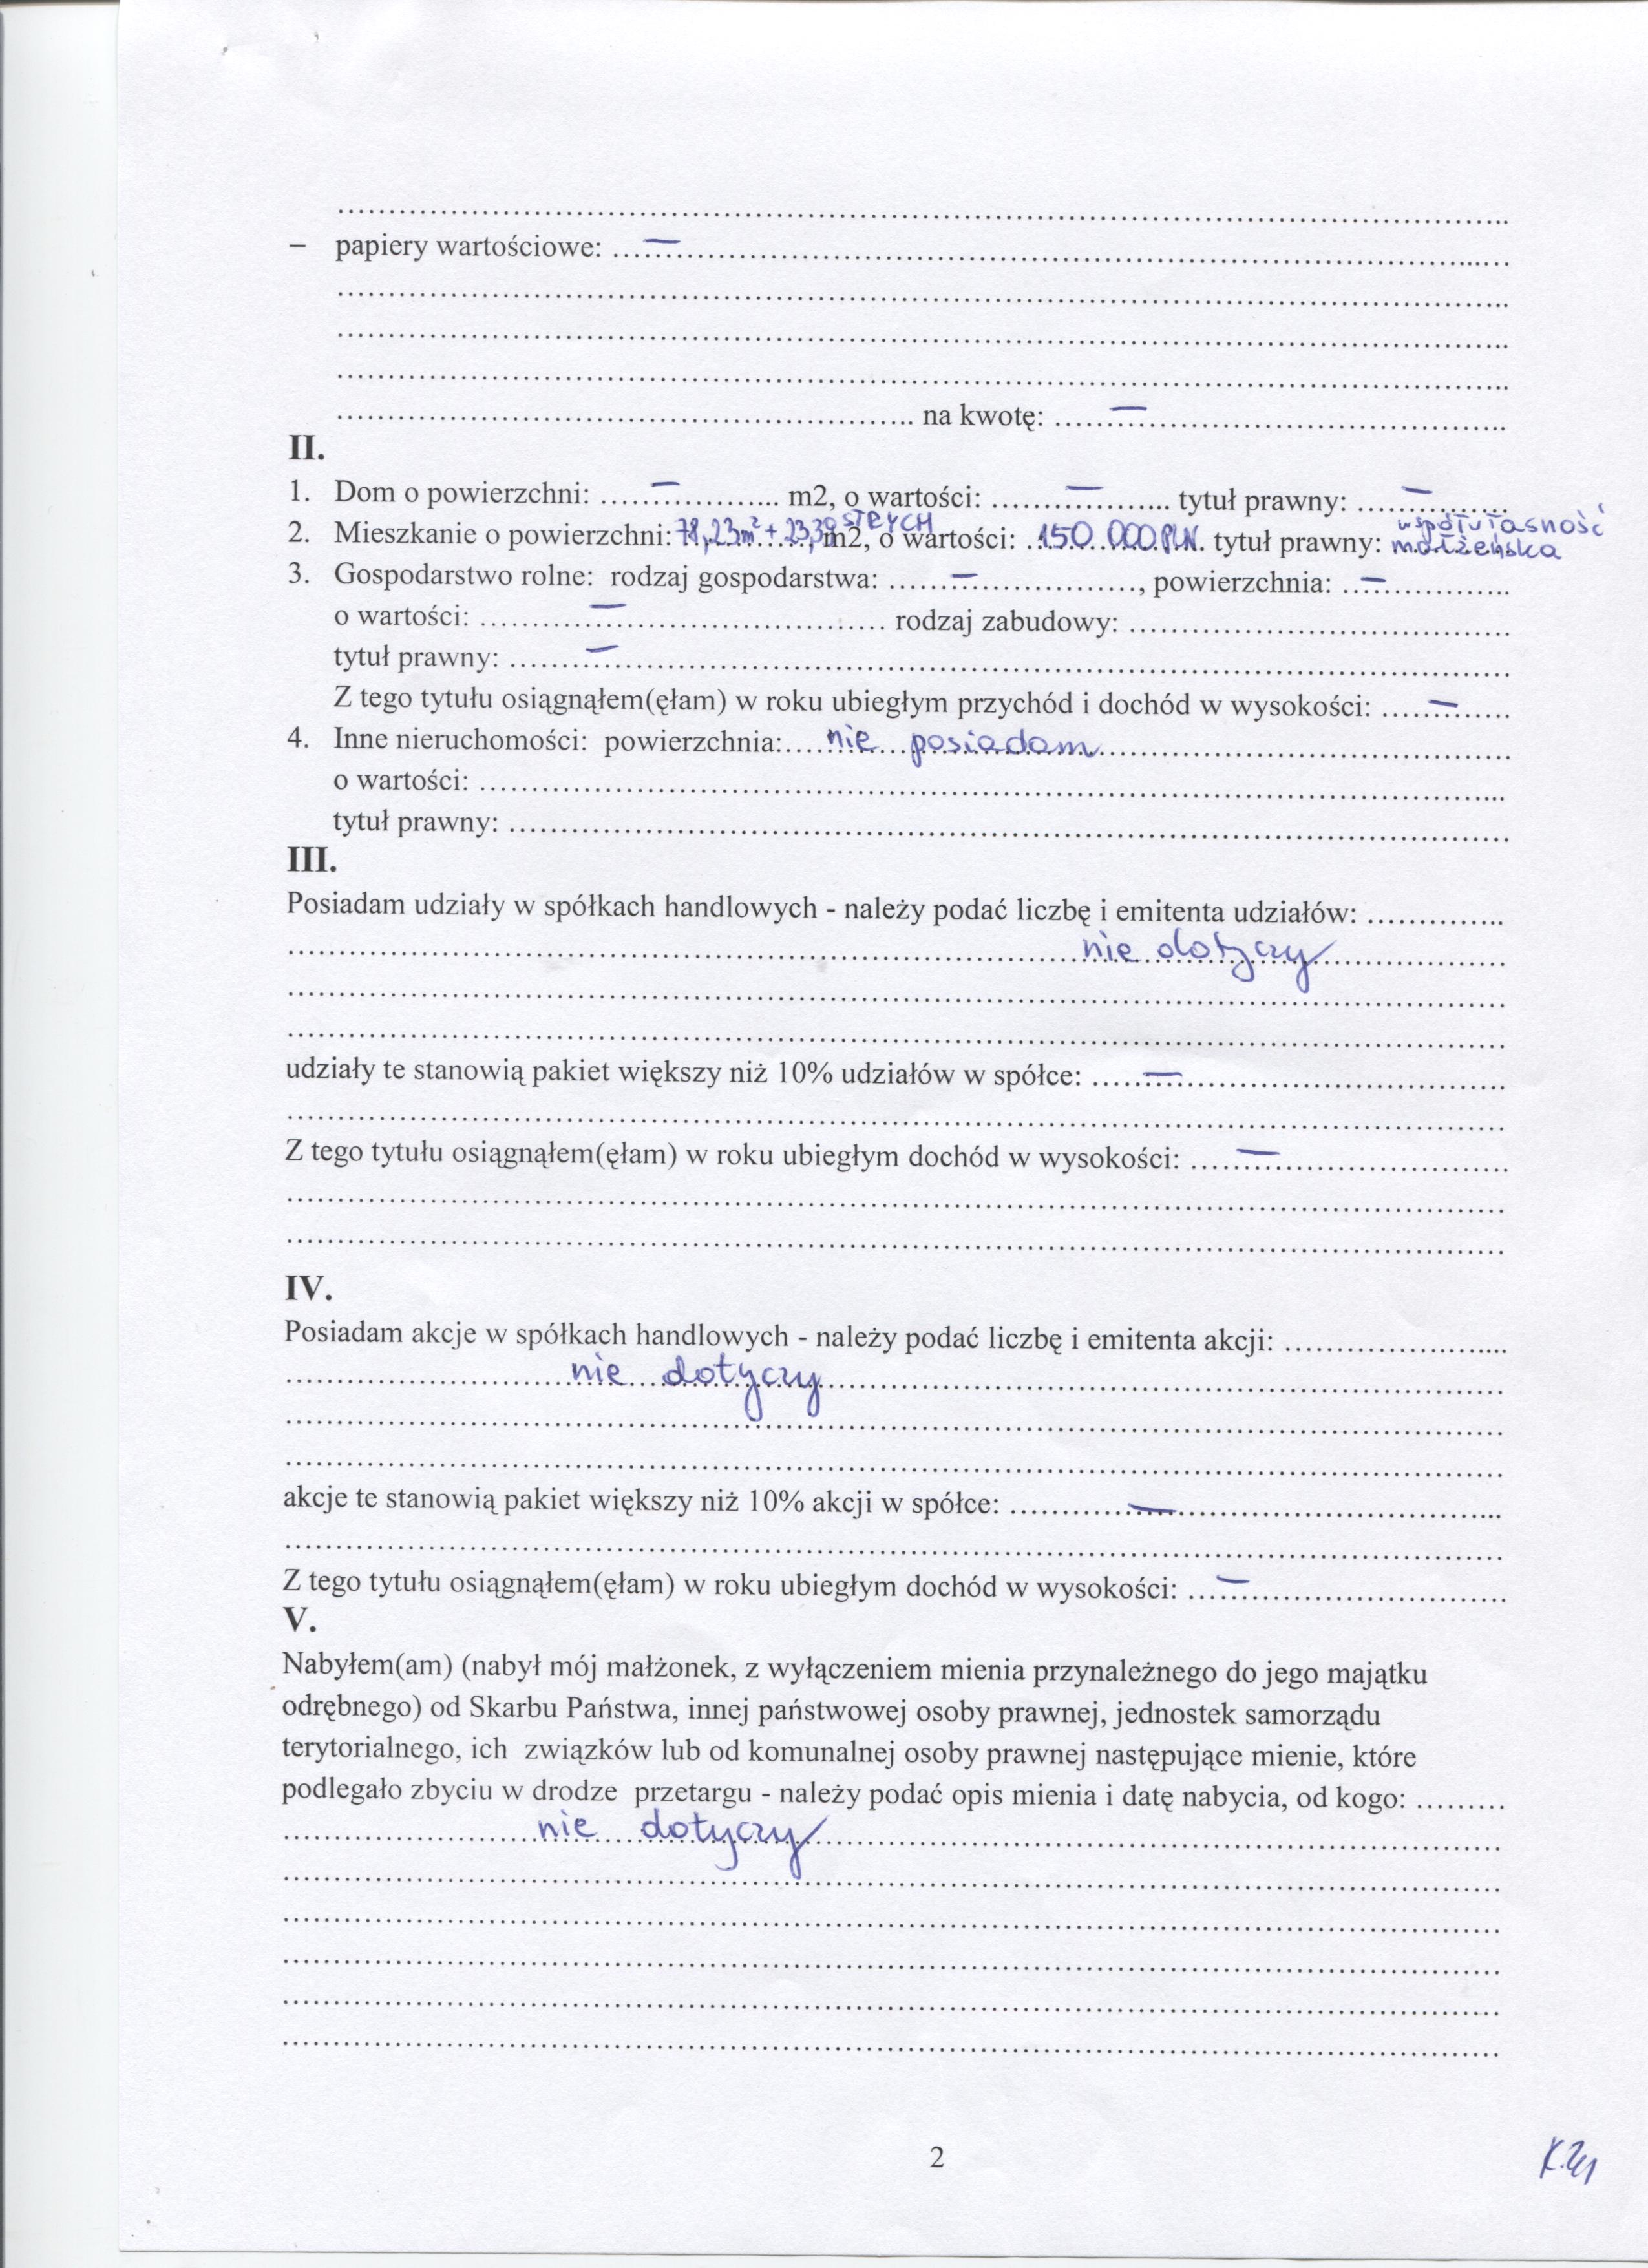 ................................................................................
– papiery wartościowe: ...—................................................
................................................................................
................................................................................
................................................................................
................................................ na kwotę: ......—................................
II.
1. Dom o powierzchni: ......—........... m2, o wartości: .........—......... tytuł prawny: .....—..........
2. Mieszkanie o powierzchni: 78,23m² + 23,39 STRYCH m2, o wartości: ..150.000 PLN. tytuł prawny: współwłasność małżeńska
3. Gospodarstwo rolne: rodzaj gospodarstwa: ......—..................., powierzchnia: ..—............
o wartości: ...........—........................... rodzaj zabudowy: .......................................
tytuł prawny: ........—................................................................
Z tego tytułu osiągnąłem(ęłam) w roku ubiegłym przychód i dochód w wysokości: .....—......
4. Inne nieruchomości: powierzchnia:.....nie posiadam........................................
o wartości: ................................................................................
tytuł prawny: ................................................................................
III.
Posiadam udziały w spółkach handlowych - należy podać liczbę i emitenta udziałów: ..............
................................................nie dotyczy....................
................................................................................
................................................................................
udziały te stanowią pakiet większy niż 10% udziałów w spółce: .....—................................
................................................................................
Z tego tytułu osiągnąłem(ęłam) w roku ubiegłym dochód w wysokości: .....—......................
................................................................................
................................................................................
IV.
Posiadam akcje w spółkach handlowych - należy podać liczbę i emitenta akcji: ......................
............................nie dotyczy................................................
................................................................................
................................................................................
akcje te stanowią pakiet większy niż 10% akcji w spółce: ............—................................
................................................................................
Z tego tytułu osiągnąłem(ęłam) w roku ubiegłym dochód w wysokości: ...—..........................
V.
Nabyłem(am) (nabył mój małżonek, z wyłączeniem mienia przynależnego do jego majątku
odrębnego) od Skarbu Państwa, innej państwowej osoby prawnej, jednostek samorządu
terytorialnego, ich związków lub od komunalnej osoby prawnej następujące mienie, które
podlegało zbyciu w drodze przetargu - należy podać opis mienia i datę nabycia, od kogo: .........
.........................nie dotyczy................................................
................................................................................
................................................................................
................................................................................
................................................................................
................................................................................
2